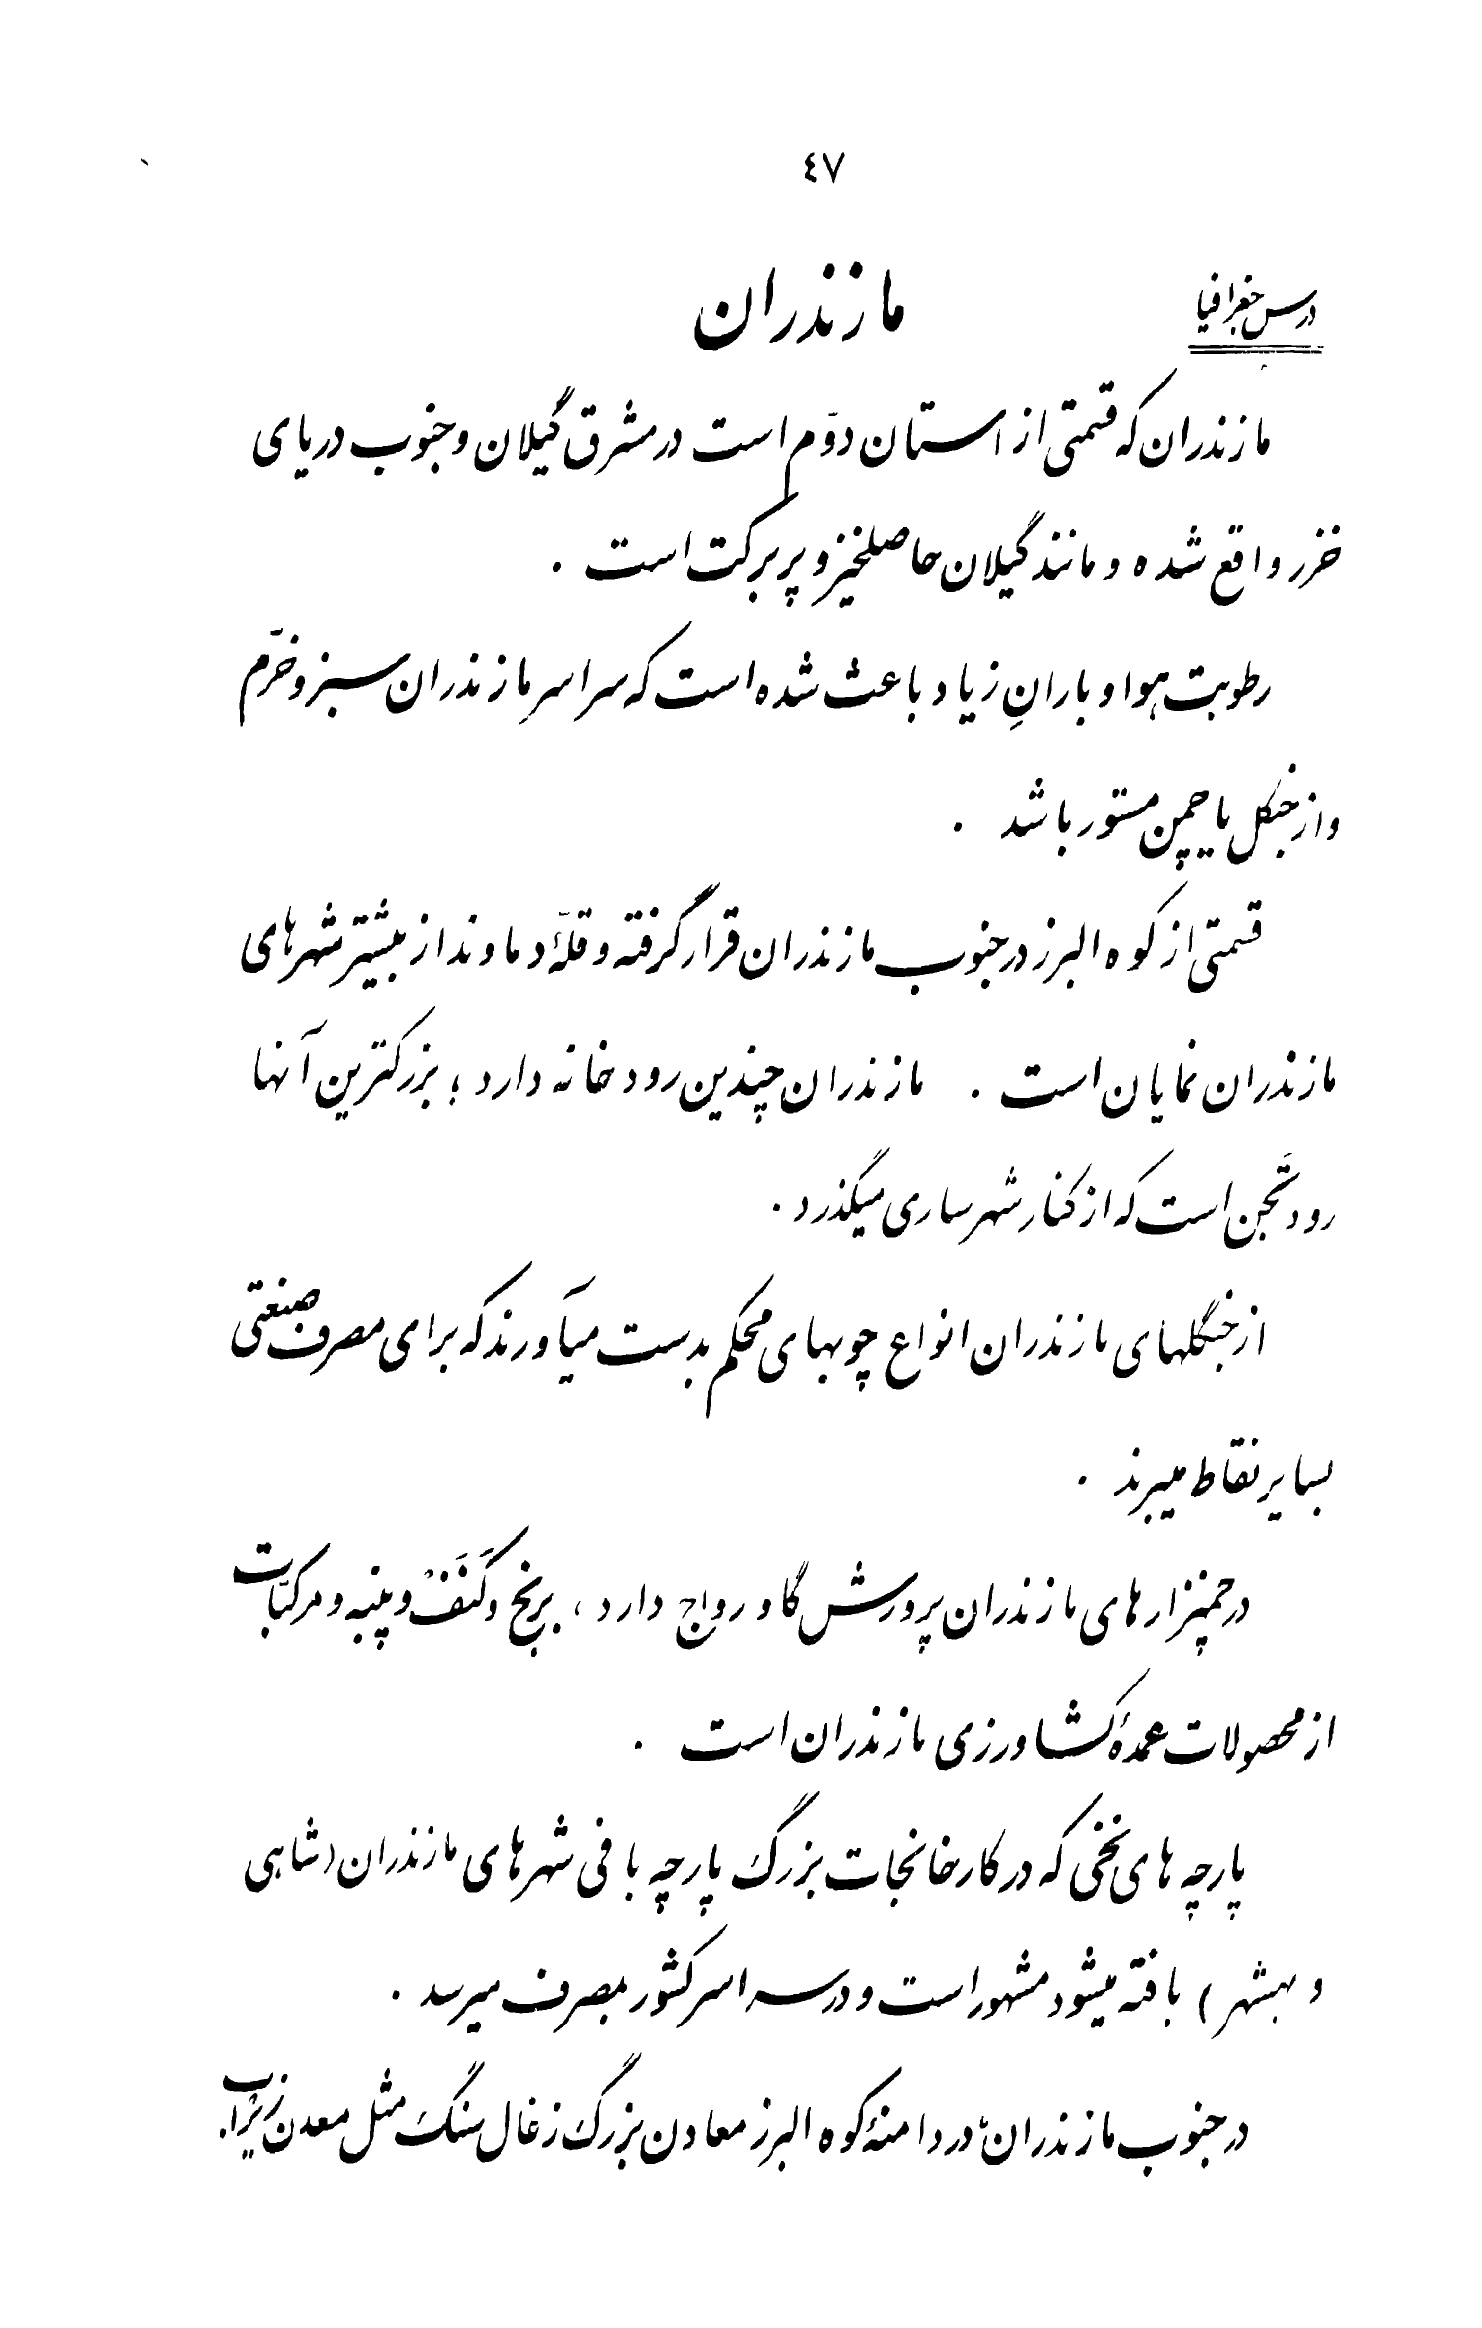 ٤٧
درس جغرافیا
مازندران
مازندران که قسمتی از استان دوّم است در مشرق گیلان و جنوب دریای
خزر واقع شده و مانند گیلان حاصلخیز و پر برکت است .
رطوبت هوا و بارانِ زیاد باعث شده است که سراسرِ مازندران سبز و خرّم
و از جنگل یا چمن مستور باشد .
قسمتی از کوه البرز در جنوب مازندران قرار گرفته و قلّهٔ دماوند از بیشتر شهرهای
مازندران نمایان است . مازندران چندین رودخانه دارد ؛ بزرگترین آنها
رود تَجن است که از کنار شهر ساری میگذرد .
از جنگلهای مازندران انواع چوبهای محکم بدست میآورند که برای مصرف صنعتی
بسایر نقاط میبرند .
در چمنزارهای مازندران پرورش گاو رواج دارد ، برنج و کَنَفْ و پنبه و مرکّبات
از محصولات عمدهٔ کشاورزی مازندران است .
پارچه های نخی که در کارخانجات بزرگ پارچه بافی شهرهای مازندران (شاهی
و بهشهر ) بافته میشود مشهور است و در سراسر کشور بمصرف میرسد .
در جنوب مازندران، در دامنهٔ کوه البرز معادن بزرگ زغال سنگ مثل معدن زیراب.